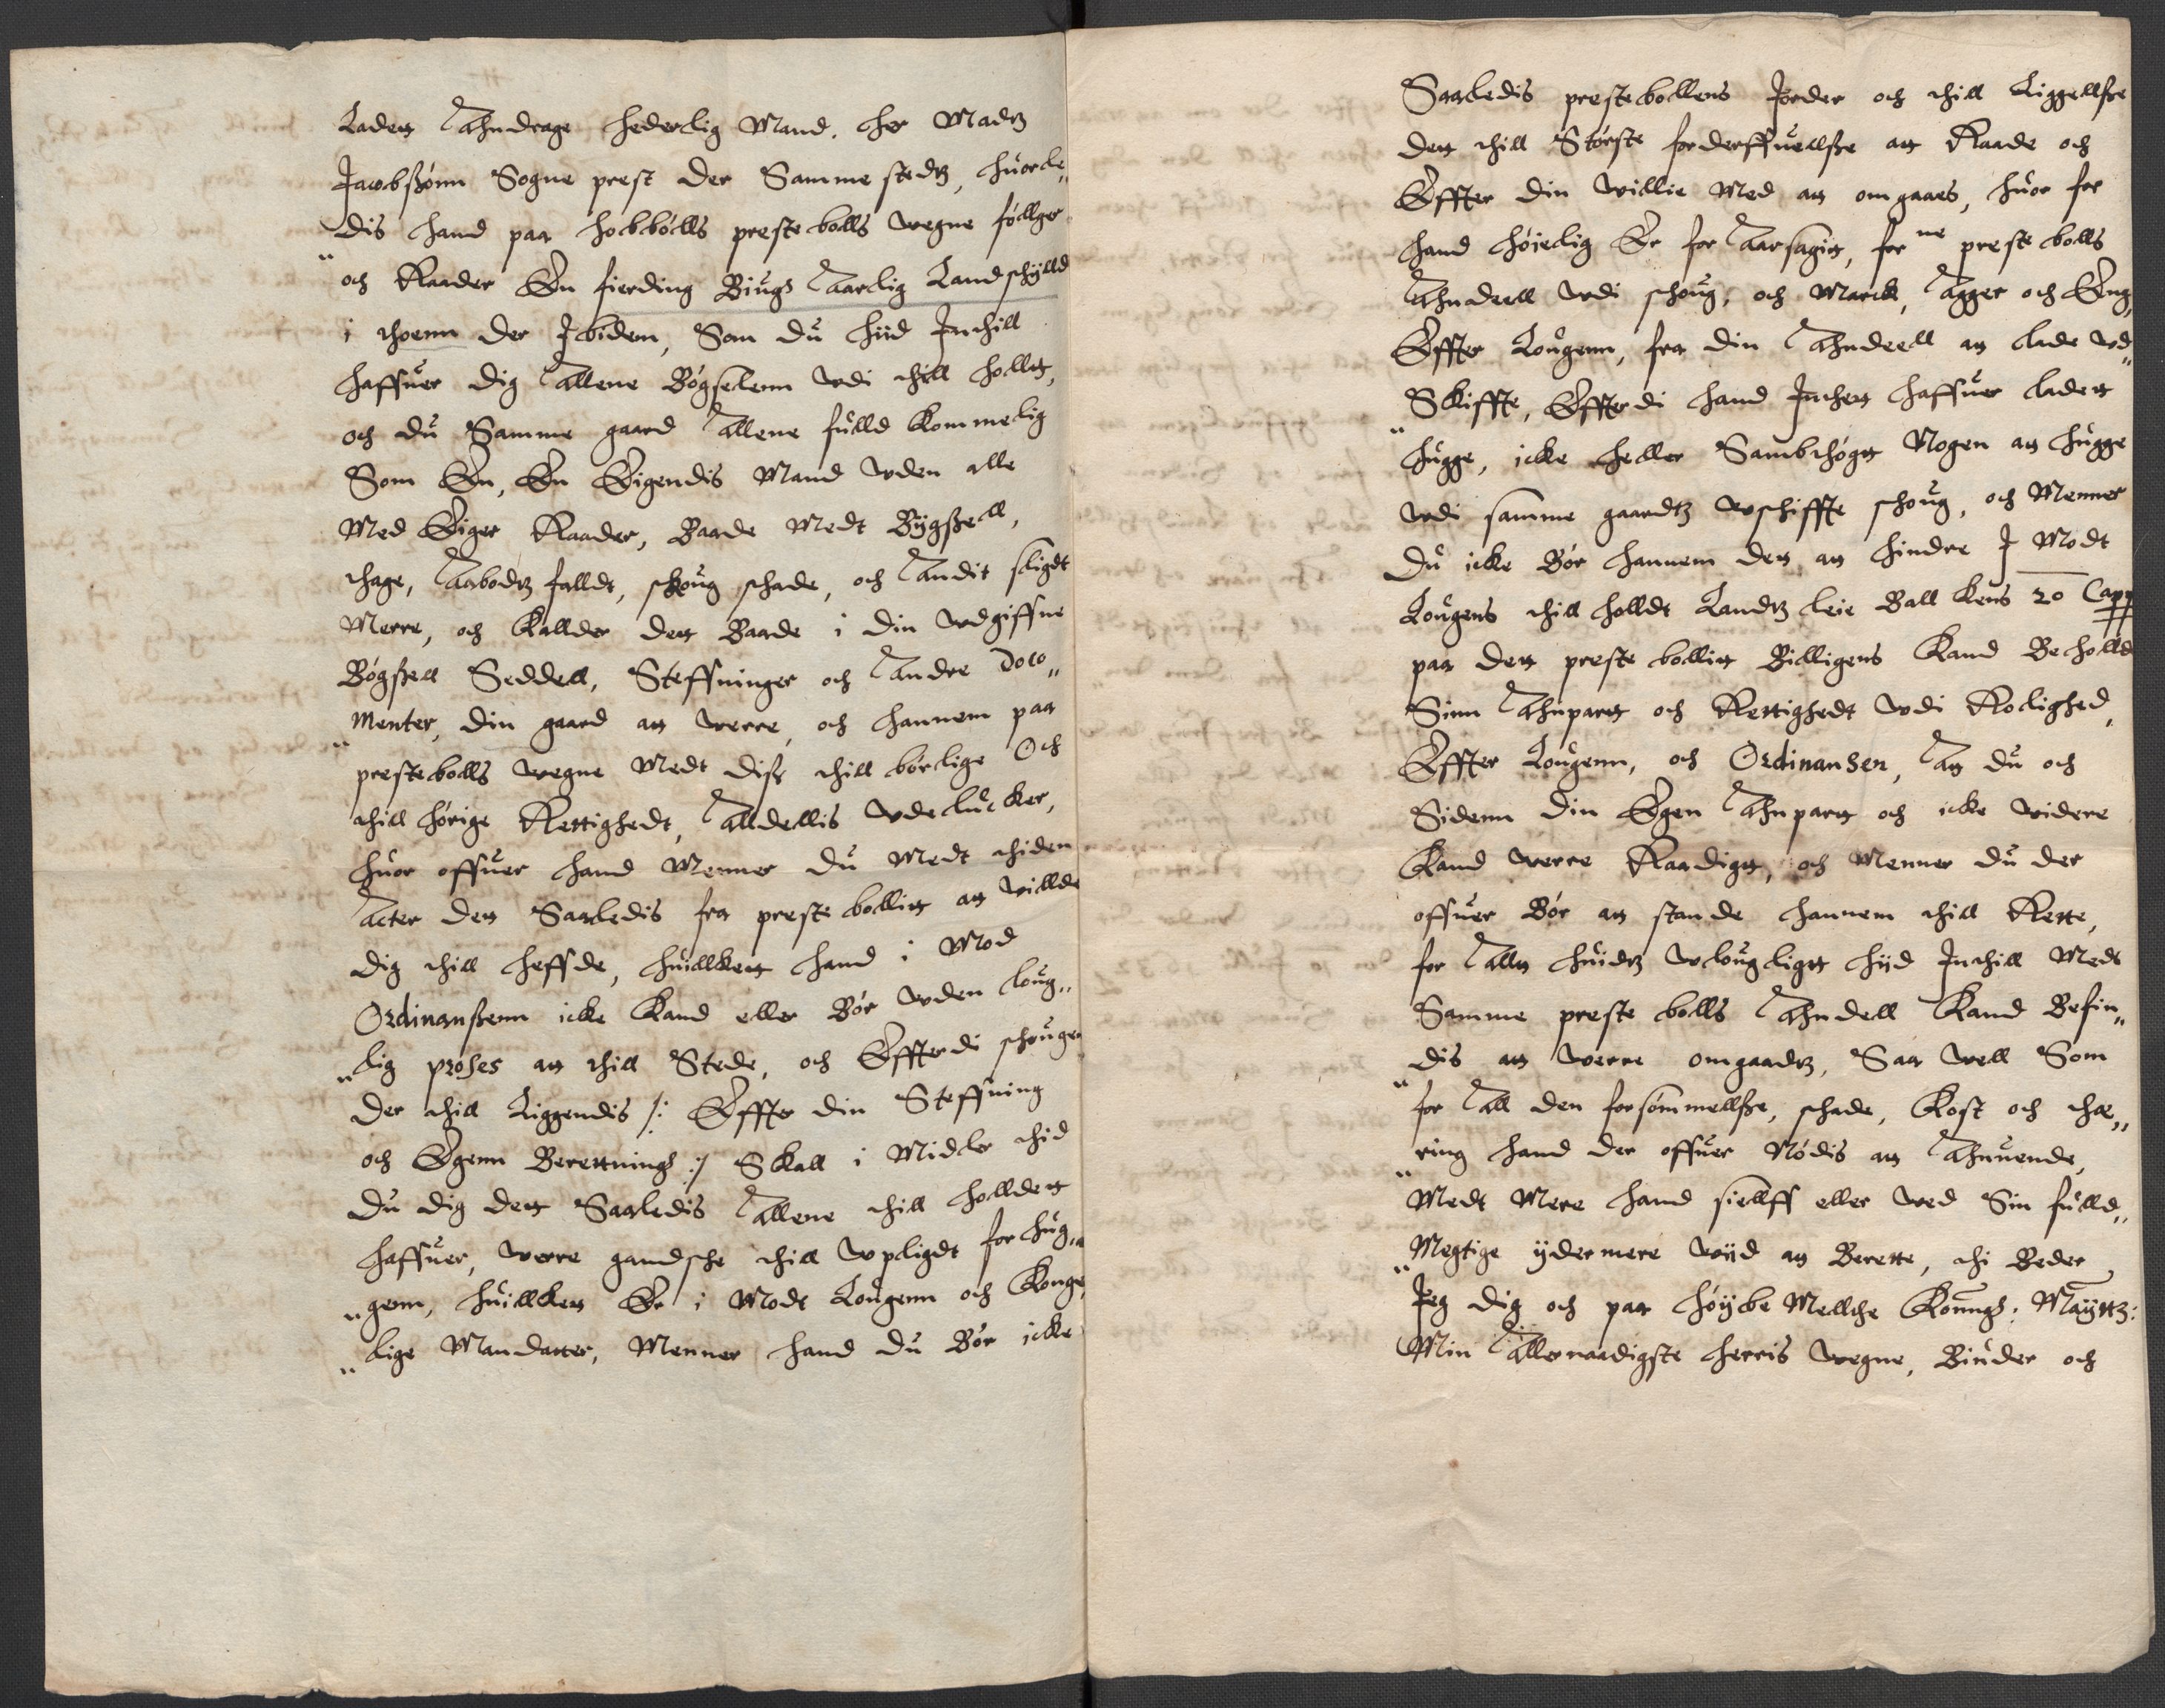 Ladet Ahndrage Hederlig Mand, Her Madtz
Jacobßønn Sogne prest der Sammestedtz, huorle„
„dis hand paa Hobbølls prestebolls wegne følger
och Raader En fierding Biugs Aarlig Landschylld
i thoenn der Ibidem, Som du hiid Indtill
haffuer dig Allene Bøgselenn wdi till hollet,
och du Samme gaard Allene fulld kommelig
Som En, En Eigendis Mand wden alle
Med Eiger Raader, Baade Medt Bygßell,
thage, Aabodtz falldt, skoug schade, och Andit sligdt
Merre, och kallder det Baade i din wdgiffne
Bøgßell Seddell, Steffninger och Andre Doco„
„menter, din gaard at werre, och hannem paa
prestebolls wegne Medt diß till børlige Och
till hørige Rettighedt, Alldellis wdelucker,
huor offuer hand Menner du Medt thiden
Acter det Saaledis fra prestebollit at willde
dig till heffde, huilcket hand i Mod
Ordinanßenn icke kand eller Bør wden loug„
„lig proses at till Stede, och Effterdi schougen
der till Liggendis /: Effter din Steffning
och Egenn Berettnings :/ Skall i Midler thid
du dig det Saaledis Allene till holldet
haffuer, werre gandsche till wpligdt forhug„
„genn, huilcket Er i Modt Lougenn och Konge„
„lige Mandater, Menner hand du Bør icke
Saaledis prestebollens Jorder och till Liggellße
det till Største forderffuellße at Raade och
Effter din willie Med at omgaaes, huor for
hand høielig Er for Aarsagit, for ne prestebolls
Ahndeell wdi schoug, och Marck, Agger och Eng,
Effter Lougenn, fra din Ahndeell at lade wd„
„Skiffte, Effterdi hand Inthet haffuer ladet
hugge, icke heller Sambthøgt Nogen at hugge
wdi samme gaardtz wschiffte schoug, och Menner
du icke Bør hannem det at hindre I Modt
Lougens till holldt Landtz leie Ball kens 20 Capp
paa det prestebollit Billigens kand Beholld
Sinn Ahnpart och Rettighedt wdi Rolighed,
Effter Lougenn, och Ordinansen, At du och
Sidenn din Egen Ahnpart och icke widere
kand werre Raadigt, och Menner du der
offuer Bør at stande hannem till Rette,
for Allt huidtz wlougligt hiid Indtill Medt
Samme prestebolls Ahndell kand Befin„
„dis at werre omgaadtz, Saa well Som
for All den forsømmellße, schade, kost och thæ„
„ring hand der offuer Nødis at Ahnuende,
Medt Mere hand siellff eller wed Sin fulld„
„Megtige ydermere wiid at Berette, thi Beder
Jeg dig och paa høybe Mellthe Kongs: Mayttz:
Min Allernaadigste Herris wegne, Biuder och